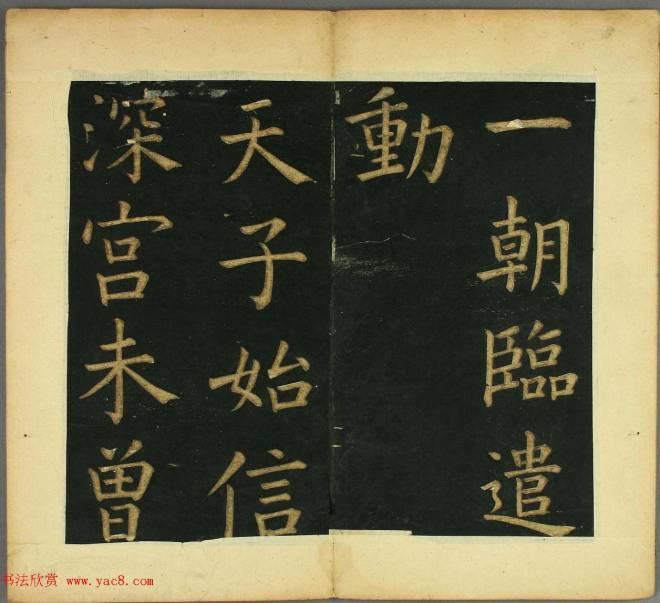 一朝臨遣
動
天子始信
深宮未曾
书法欣赏 www.yac8.com